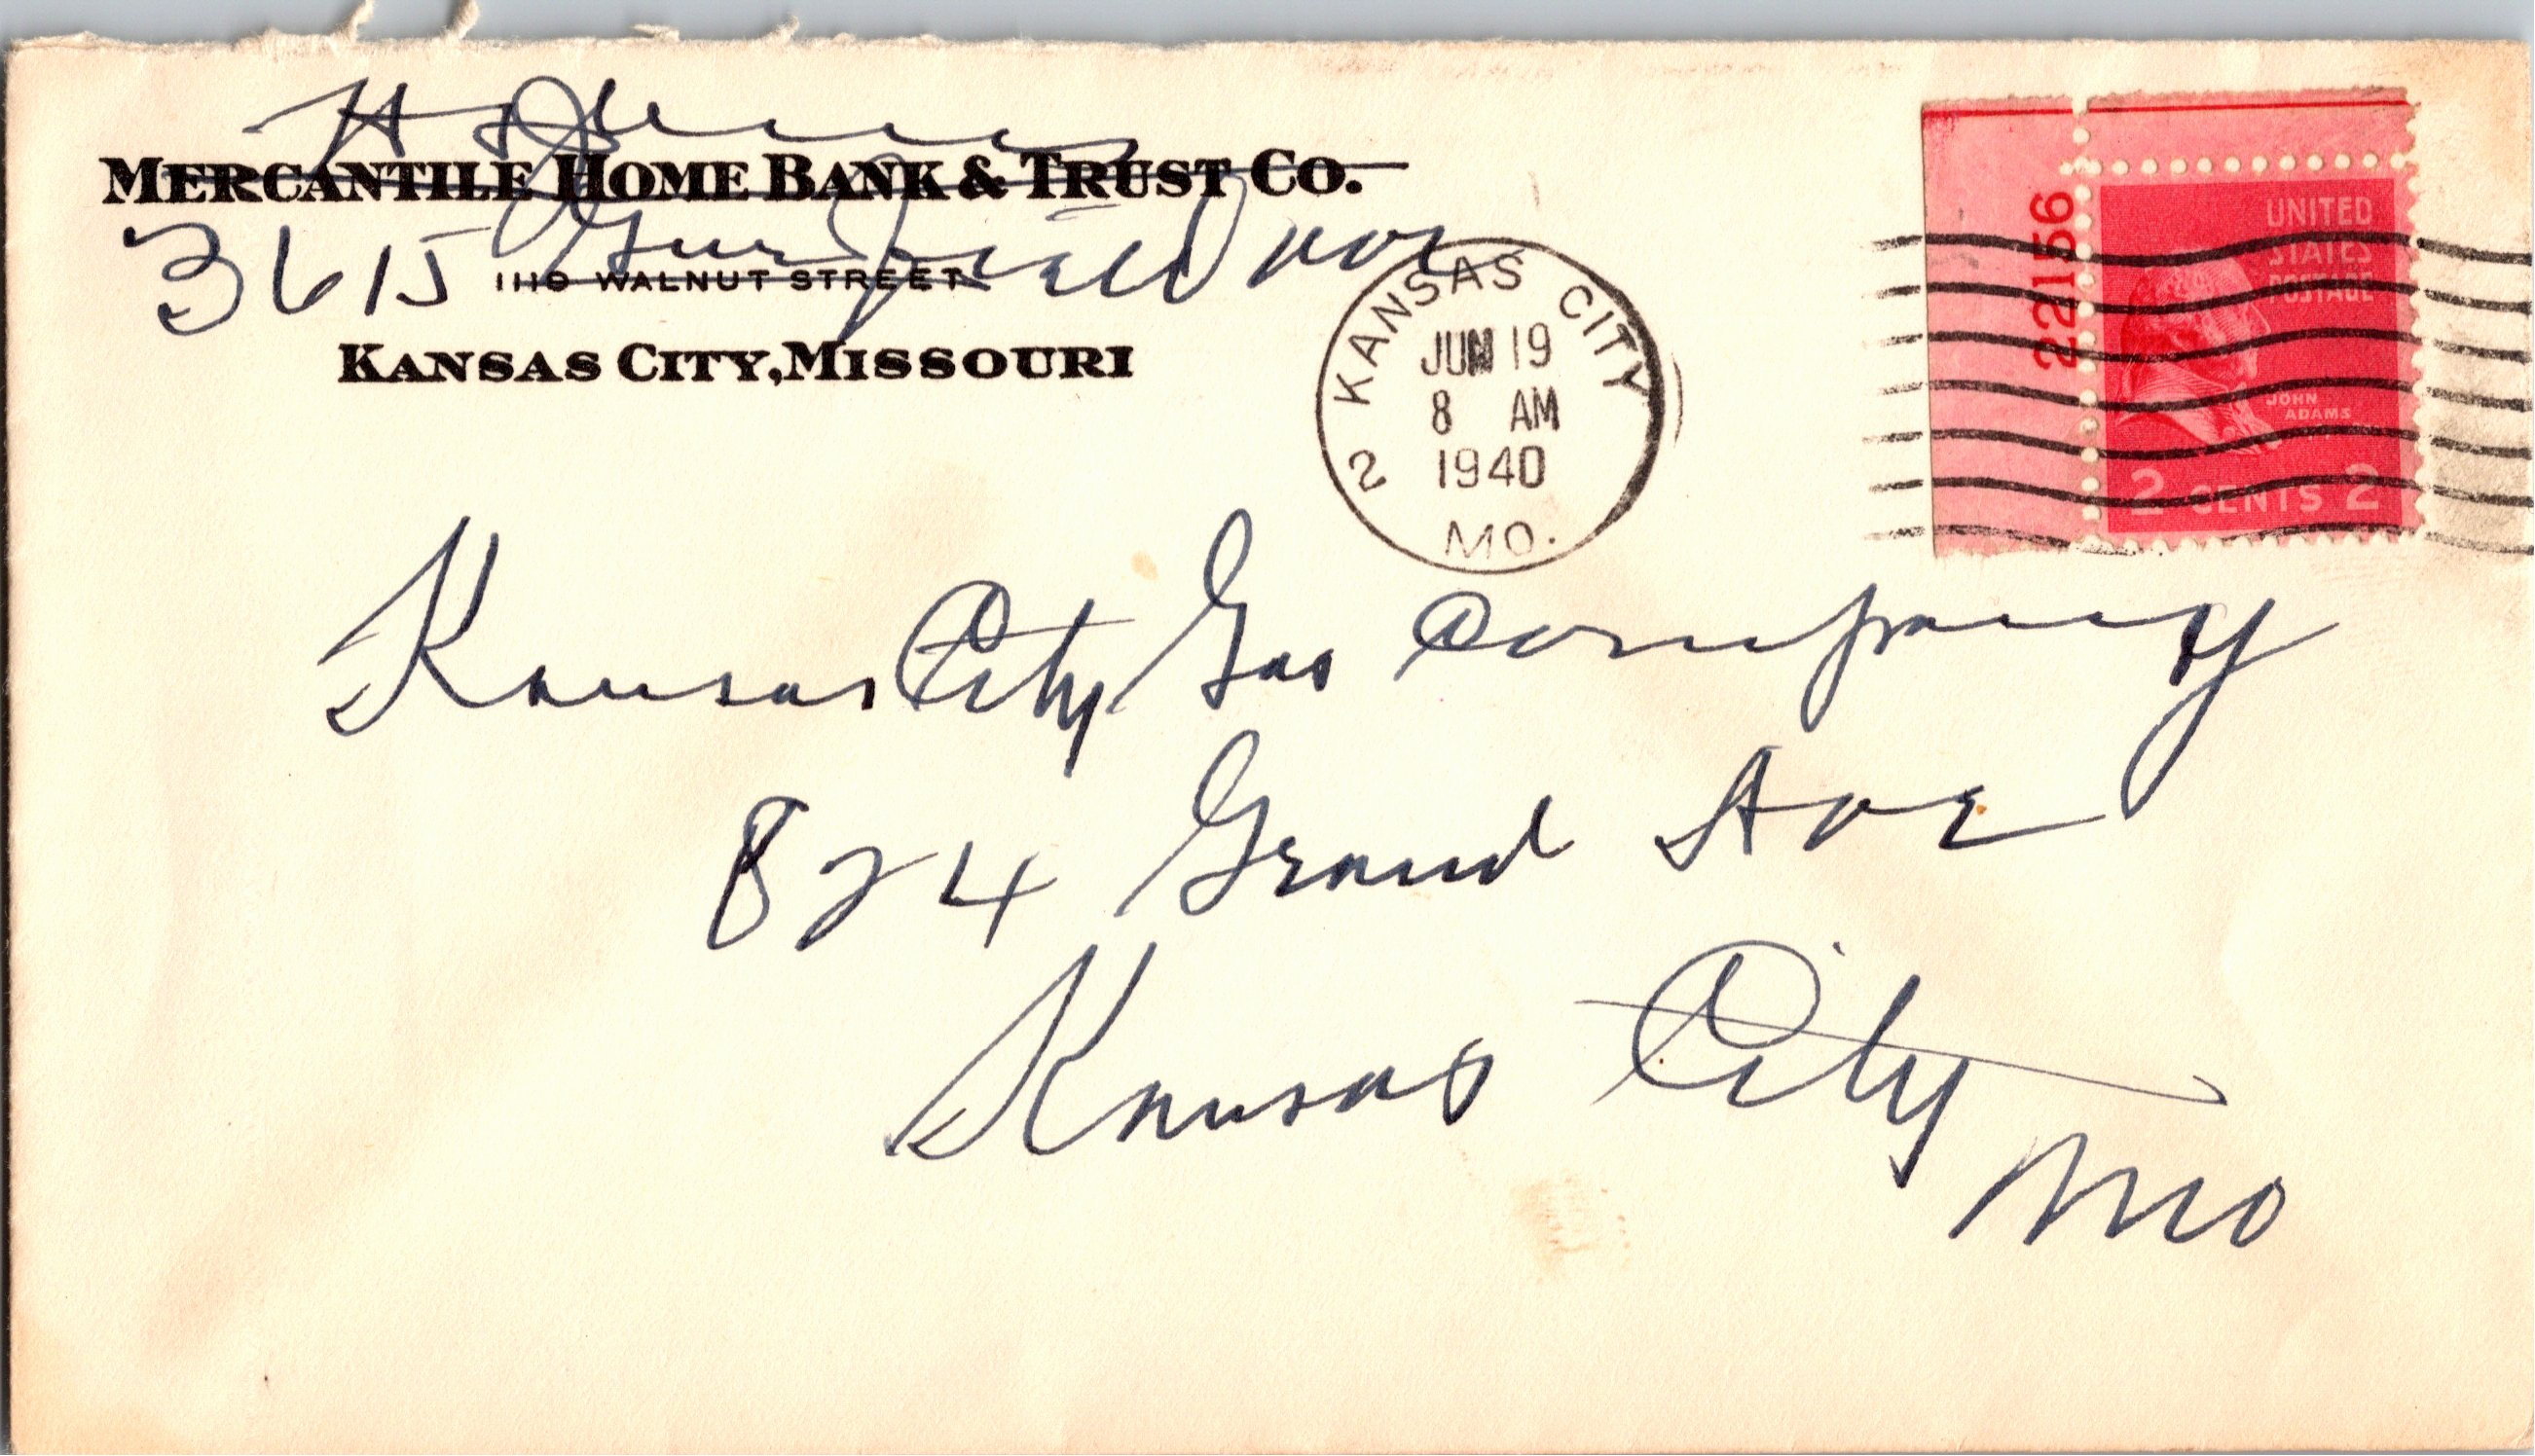 MERCANTILE HOME BANK & TRUST CO.
3615 Garfield Ave
1119 WALNUT STREET
KANSAS CITY, MISSOURI
KANSAS CITY 2
JUN 19
8 AM
1940
MO.
22156
UNITED
STATES
POSTAGE
JOHN
ADAMS
2 CENTS 2
Kansas City Gas Company
824 Grand Ave
Kansas City
Mo